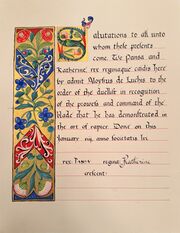 Salutations to all unto
whom these presents
come. We Pansa and
Katherine, rex reginaque caidis here
by admit Aloysius de Luchis to the
order of the duellist in recognition
of the prowess and command of the
blade that he has demonstrated in
the art of rapier. Done on this
January anno societatis
rex: PANSA regina: Katherine
crescent: